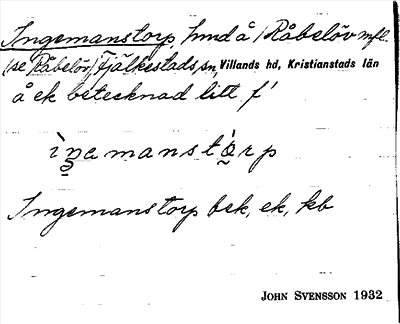 Ingemanstorp, hmd å /Råbelöv mfl.
(se Råbelöv,) Fjälkestads sn, Villands hd, Kristianstads län
å ek betecknad litt f'
Ingemanstorp bek, ek, kb
JOHN SVENSSON 1932